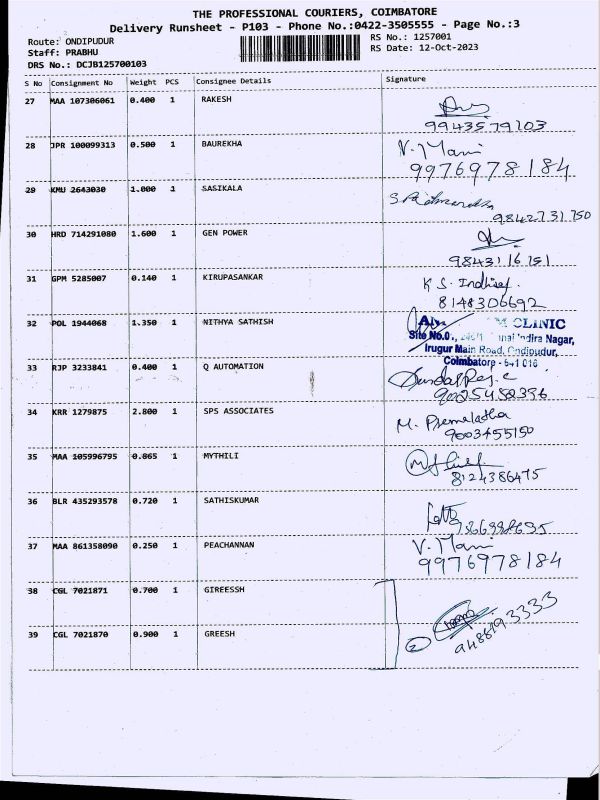 THE PROFESSIONAL COURIERS, COIMBATORE
Delivery Runsheet - P103 - Phone No.:0422-3505555 - Page No.:3
Route: ONDIPUDUR RS No.: 1257001
Staff: PRABHU RS Date: 12-Oct-2023
DRS No.: DCJB125700103
S No Consignment No Weight PCS Consignee Details Signature
27 MAA 107306061 0.400 1 RAKESH
28 JPR 100099313 0.500 1 BAUREKHA V. Mani
9976978184
29 KMU 2643030 1.000 1 SASIKALA
9842731750
30 HRD 714291080 1.600 1 GEN POWER
9843116751
31 GPM 5285007 0.140 1 KIRUPASANKAR K S.
8148306692
32 POL 1944068 1.350 1 NITHYA SATHISH CLINIC
Site No.0., Indira Nagar,
Irugur Main Road, Ondipudur,
Coimbatore - 641 016
33 RJP 3233841 0.400 1 Q AUTOMATION
34 KRR 1279875 2.800 1 SPS ASSOCIATES M. Premalatha
9003455150
35 MAA 105996795 0.865 1 MYTHILI
8124386475
36 BLR 435293578 0.720 1 SATHISKUMAR
37 MAA 861358090 0.250 1 PEACHANNAN V. Mani
9976978184
38 CGL 7021871 0.700 1 GIREESSH
39 CGL 7021870 0.900 1 GREESH 2